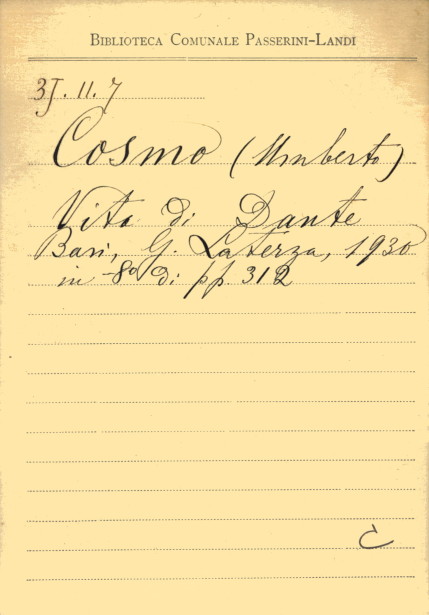 BIBLIOTECA COMUNALE PASSERINI-LANDI
3J. 11. 7
Cosmo (Umberto)
Vita di Dante
Bari, G. Laterza, 1930
in -8º di pp. 312
C